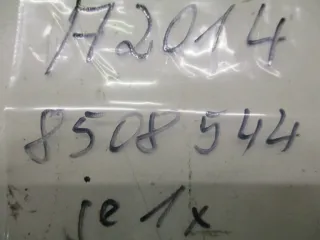 172014
8508544
je 1x